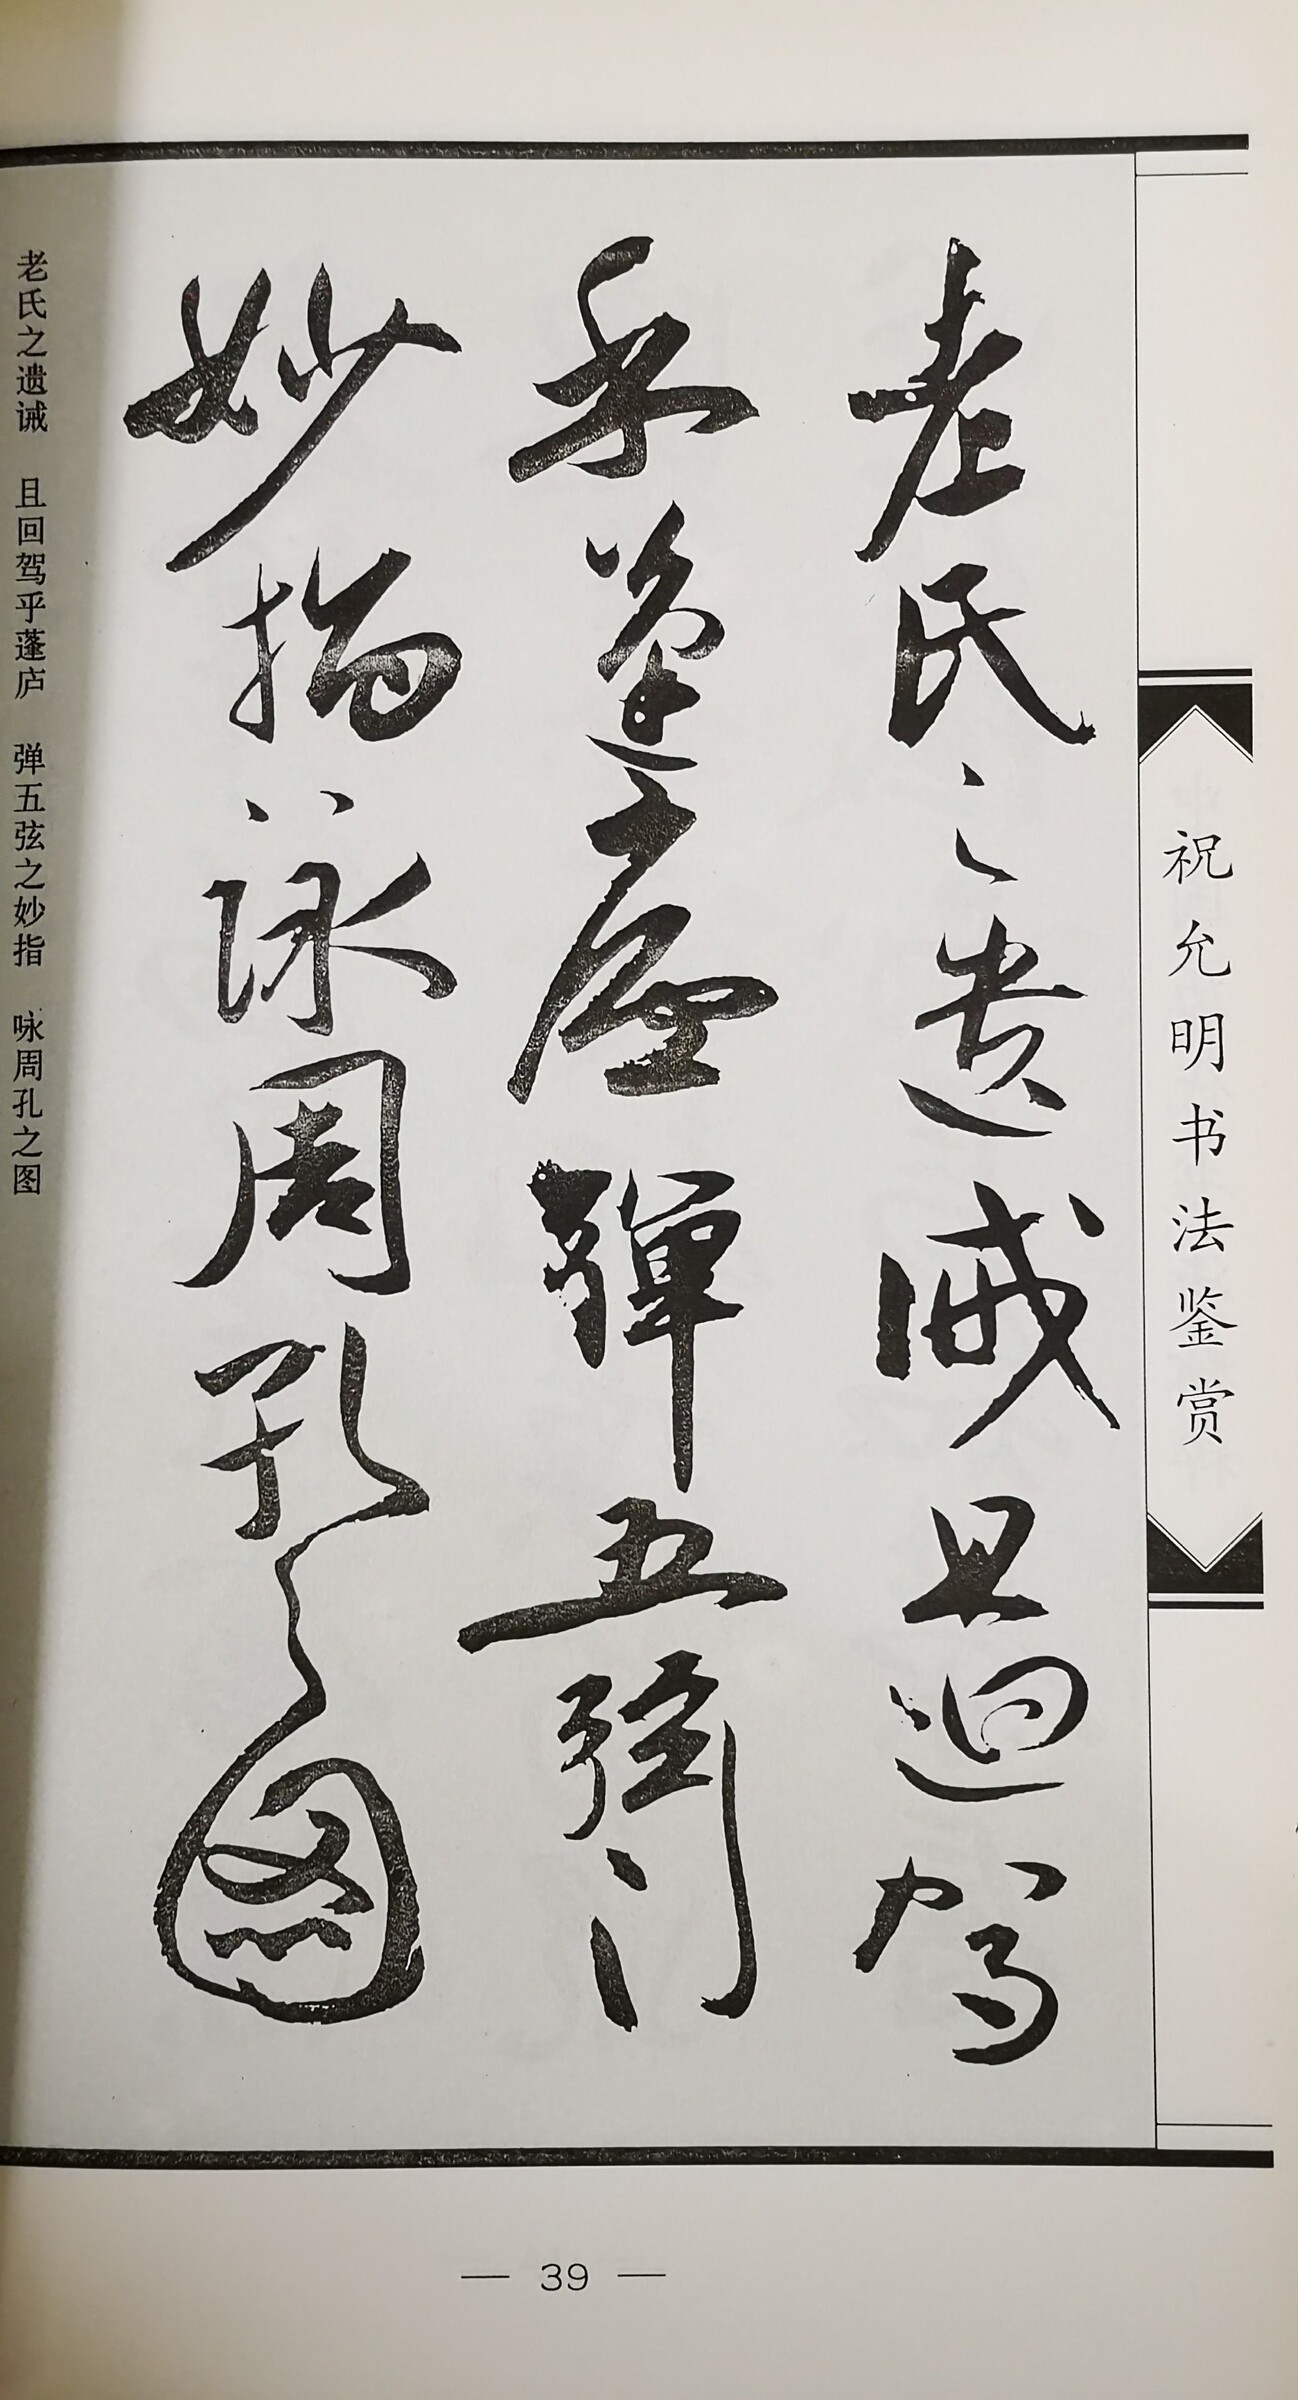 祝允明书法鉴赏
老氏之遗诫且迴驾
乎蓬庐弹五弦之
妙指咏周孔之图
老氏之遗诫 且回驾乎蓬庐 弹五弦之妙指 咏周孔之图
— 39 —